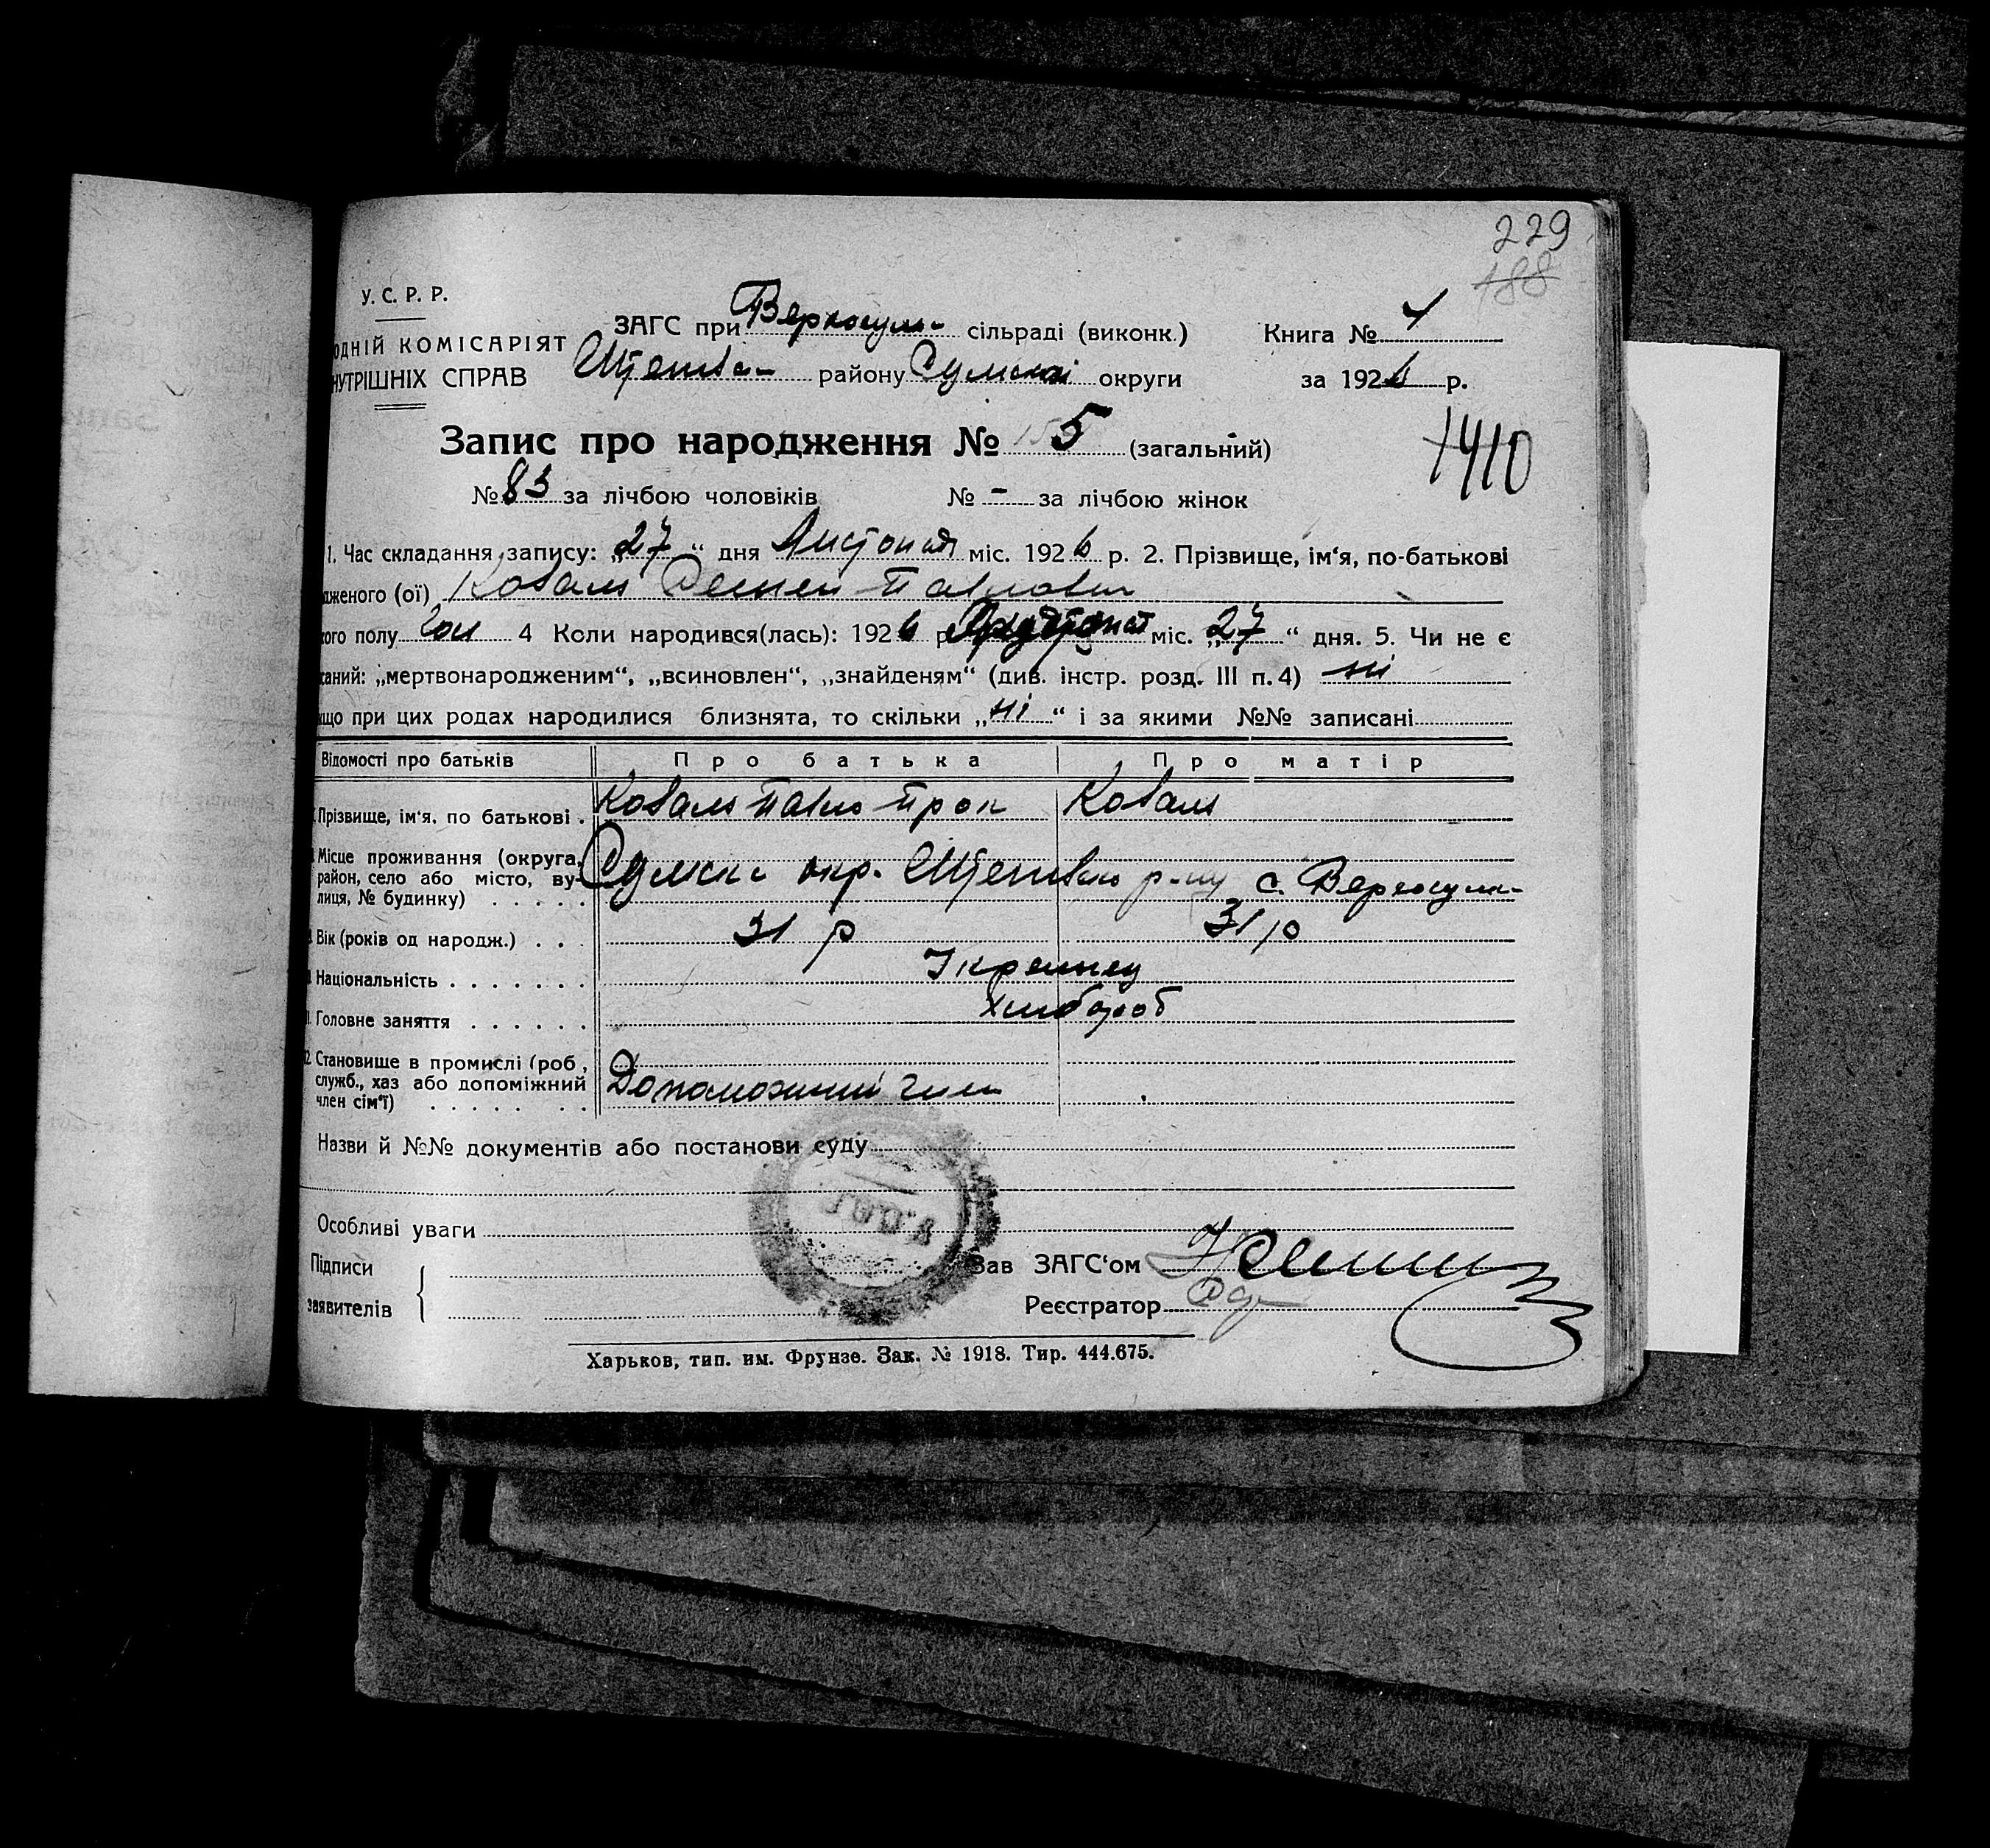 229
188
У. С. Р. Р.
ЗАГС при Верхосуль- сільраді (виконк.) Книга №
ОДНІЙ КОМІСАРІЯТ
НУТРІШНІХ СПРАВ Штепівськ району Сумської округи за 1926 р.
Запис про народження № 5 (загальний)
1410
№ 83 за лічбою чоловіків № - за лічбою жінок
1. Час складання запису: „27“ дня Листопад міс. 1926 р. 2. Прізвище, ім‘я, по-батькові
дженого (ої) Коваль Семен Павлович
кого полу чол 4 Коли народився(лась): 1926 р. міс. „27“ дня. 5. Чи не є
саний: „мертвонародженим“, „всиновлен“, „знайденям“ (див. інстр. розд. III п. 4) ні
кщо при цих родах народилися близнята, то скільки „ні“ і за якими №№ записані
Відомості про батьків Про батька Про матір
Прізвище, ім‘я, по батькові . Коваль Павло Прок Коваль
Місце проживання (округа,
район, село або місто, ву-
лиця, № будинку) . . . . . Сумськ окр. Штепівськ р-ну с. Верхосуль-
Вік (років од народж.) . . . 31 р 31 р
Національність . . . . . . . Українец
Головне заняття . . . . . . хлібороб
Становище в промислі (роб,
служб., хаз або допоміжний
член сім‘ї) . . . . . . . Допоможний член
Назви й №№ документів або постанови суду
Особливі уваги
Підписи Зав ЗАГС‘ом
заявителів Реєстратор
Харьков, тип. им. Фрунзе. Зак. № 1918. Тир. 444.675.